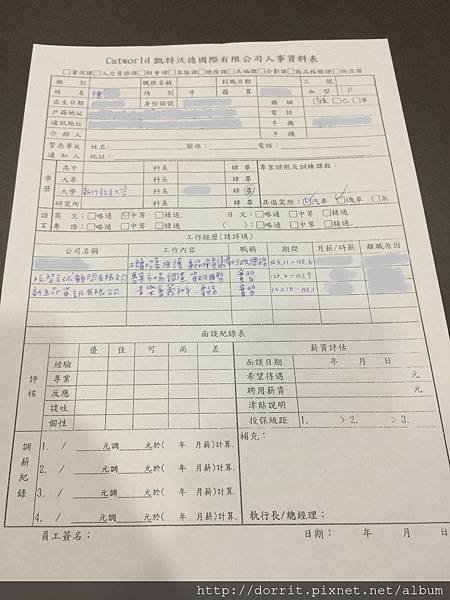 Catworld 凱特沃德國際有限公司人事資料表
□資訊課□人力資源課□財會課□客服課□總務課□美編課□企劃課□商品採購課□物流課
組別 職務名稱 到職日期 工號
姓名 陳 性別 女 籍貫 血型 O
出生日期 身份證號 婚姻 □未□已□單
戶籍地址 電話
通訊地址 手機
介紹人 手機
緊急事故通知人 姓名: 關係: 電話:
地址:
學歷 高中 科系 肄 畢 專業證照及訓練課程:
大專 科系 肄 畢
大學 新竹教育大學 科系 肄 畢
研究所 科系 肄 畢 具備駕照:□汽車 □機車 □無
語言 英文:□略通 ☑中等 □精通. 日文:□略通 □中等 □精通.
專語:□略通 □中等 □精通. ( ):□略通 □中等 □精通.
工作經歷(請詳填)
公司名稱 工作內容 職稱 期間 月薪/時薪 離職原因
103.11-105.6
有限公司
有限公司 102.10-103.1
面談紀錄表
優 佳 可 尚 差 薪資評估
評核 經驗 面談日期 年 月 日
專業 希望待遇 元
反應 聘用薪資 元
談吐 津貼說明
個性 投保級距 1. >2. >3.
調薪紀錄 1. / 元調 元於( 年 月薪)計算. 補充:
2. / 元調 元於( 年 月薪)計算.
3. / 元調 元於( 年 月薪)計算.
4. / 元調 元於( 年 月薪)計算. 執行長/總經理:
員工簽名: 日期: 年 月 日
http://dorrit.pixnet.net/album